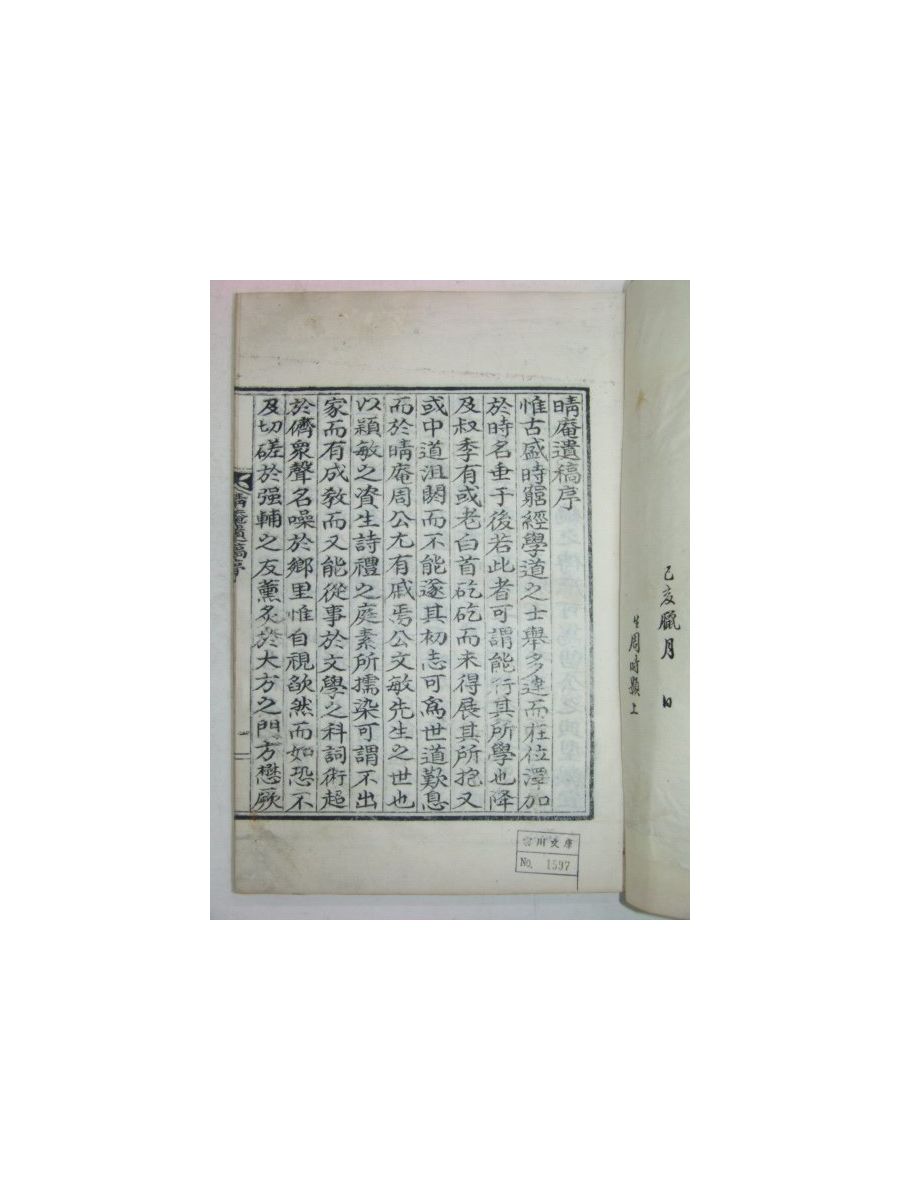 己亥臘月 日
生周時顯上
晴庵遺稿序
惟古盛時窮經學道之士舉多達而在位澤加
於時名垂于後若此者可謂能行其所學也降
及叔季有或老白首矻矻而未得展其所抱又
或中道沮閼而不能遂其初志可爲世道歎息
而於晴庵周公尤有戚焉公文敏先生之世也
以穎敏之資生詩禮之庭素所擩染可謂不出
家而有成教而又能從事於文學之科詞術超
於儕衆聲名噪於鄉里惟自視欿然而如恐不
及切磋於强輔之友薰炙於大方之門方懋厥
晴庵遺稿序
一
文庫
No. 1597